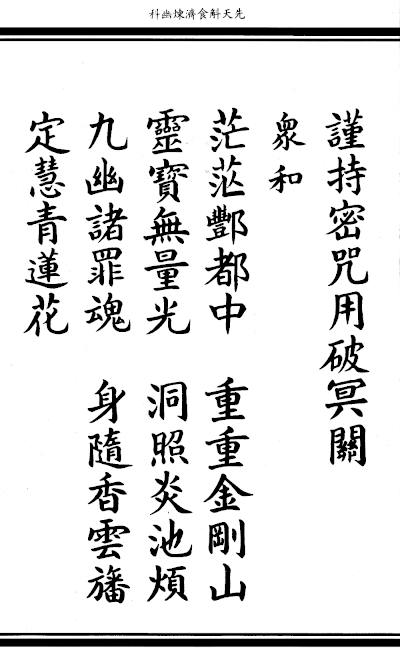 先天斛食濟煉幽科
謹持密咒用破冥關
衆和
茫茫酆都中　重重金剛山
靈寶無量光　洞照炎池煩
九幽諸罪魂　身隨香雲旛
定慧青蓮花